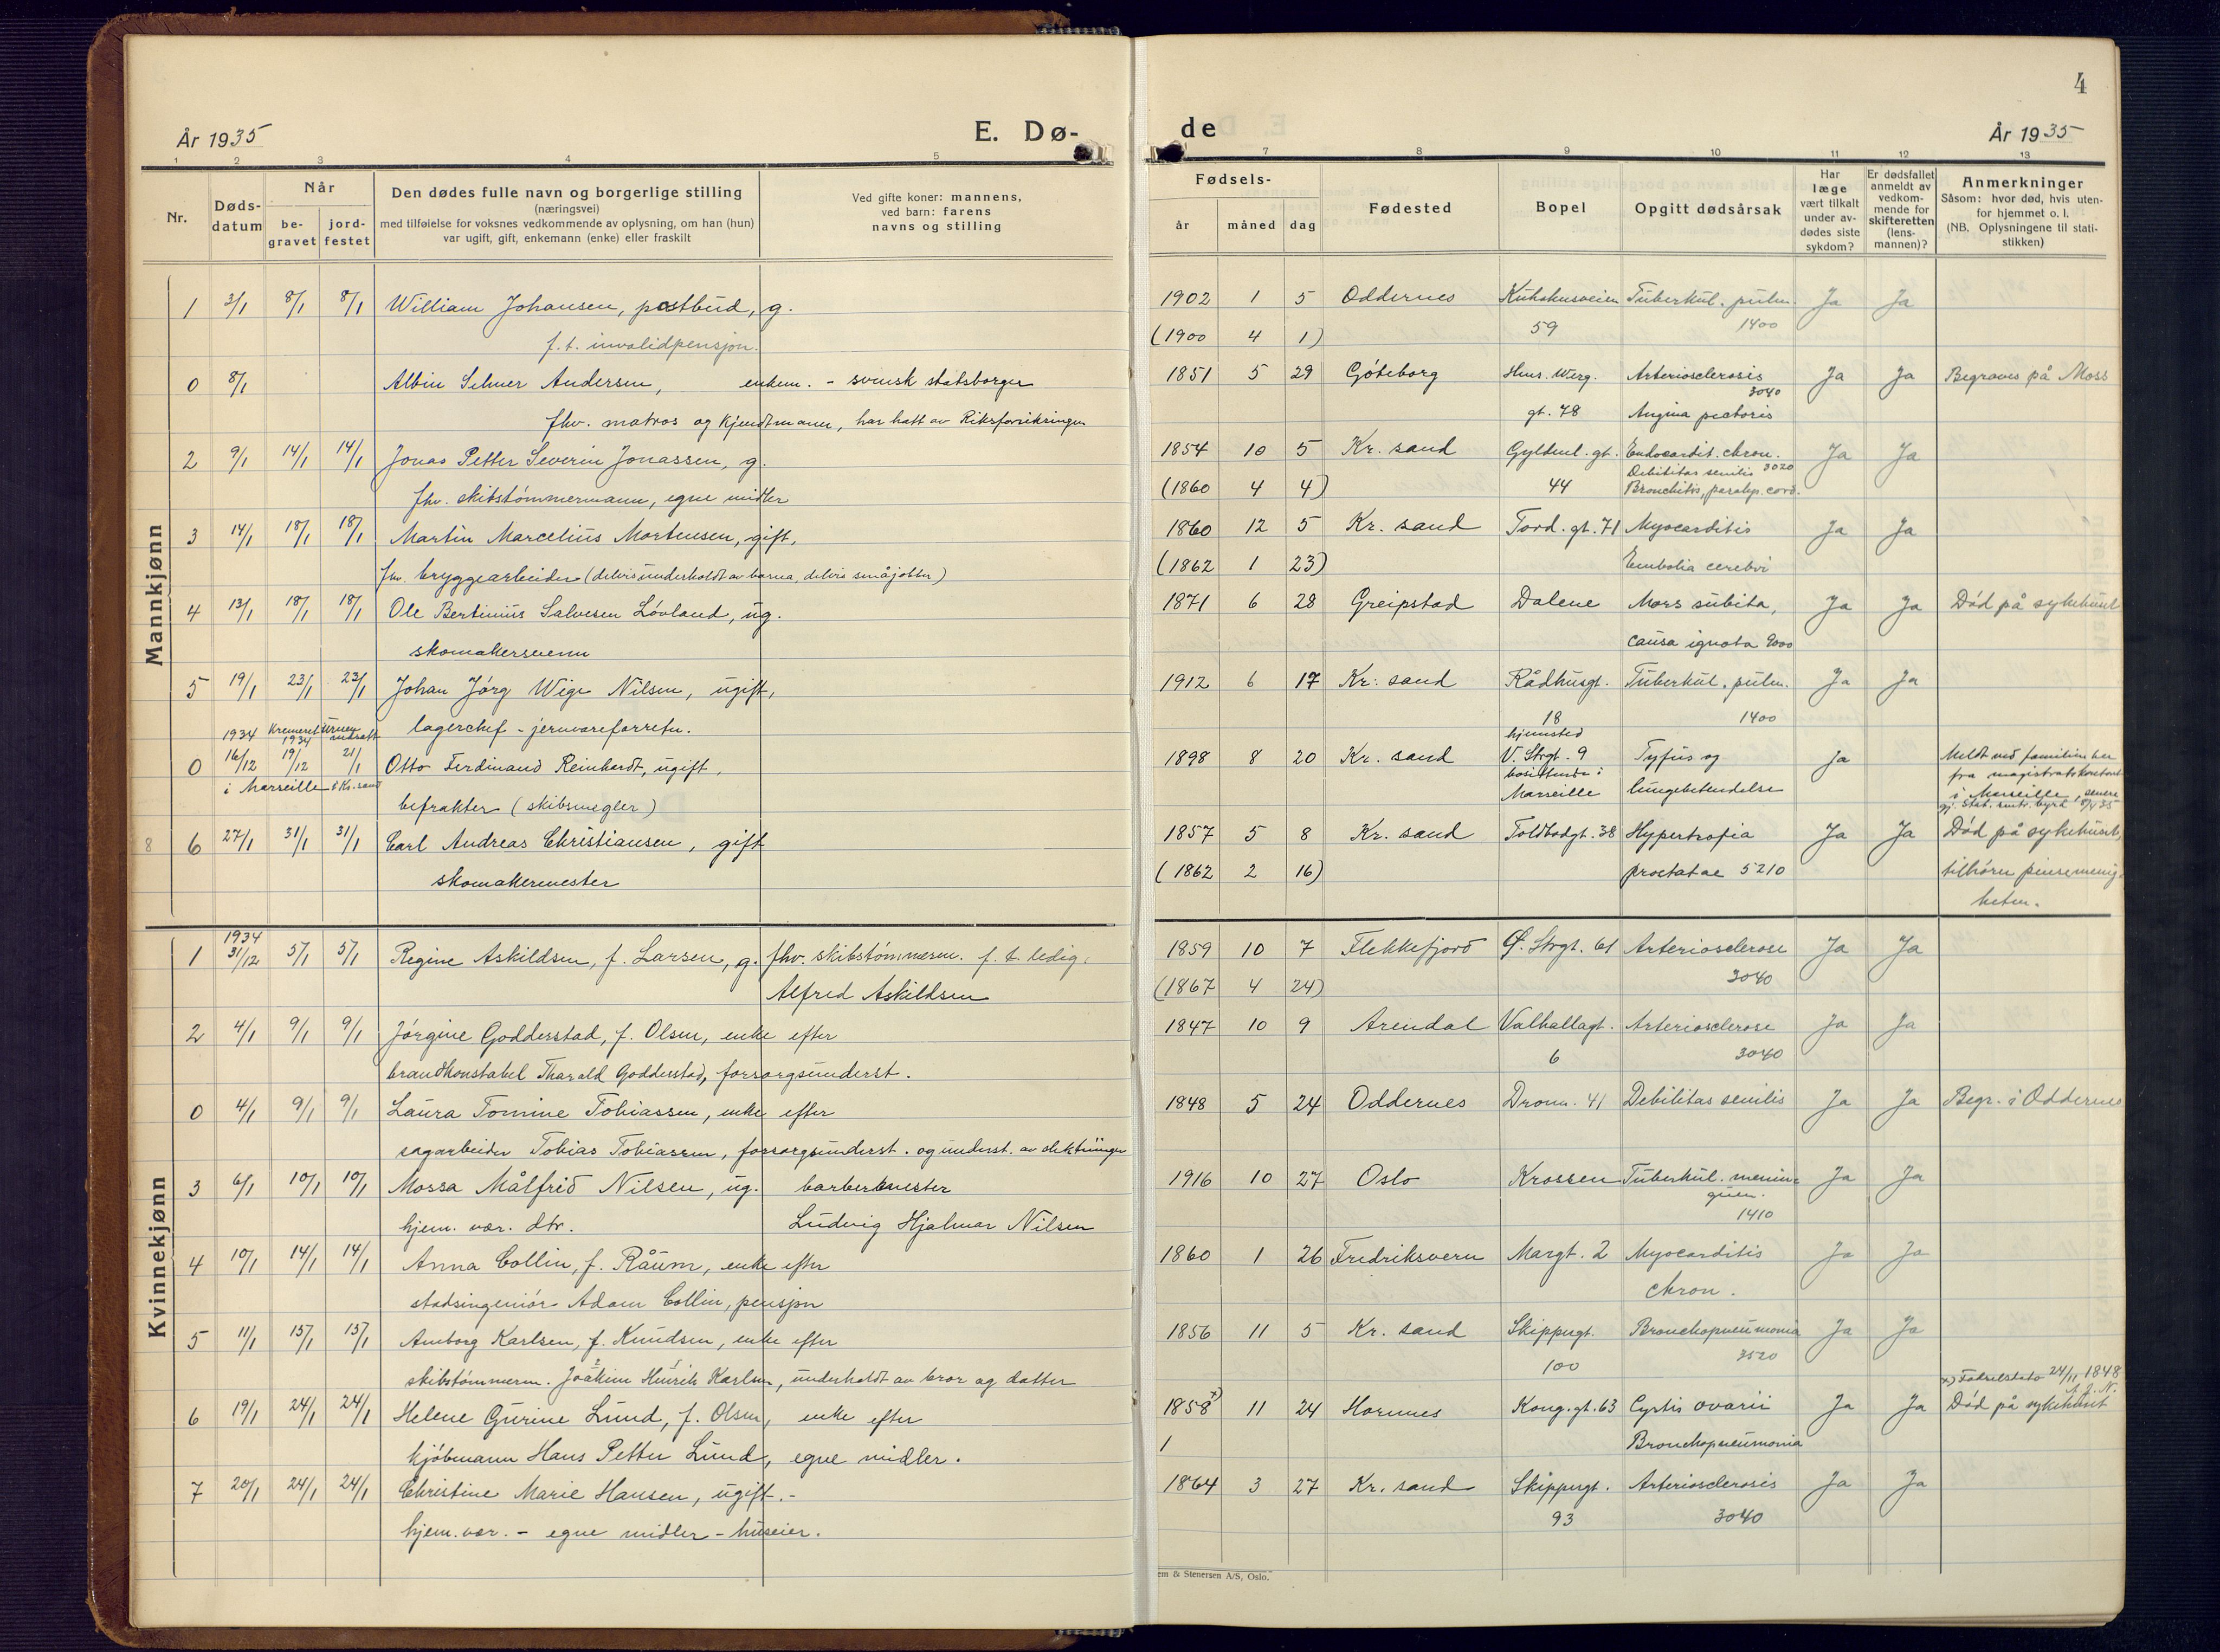 4
År 1935
E. Dø-
de
År 1935
1 2 3 4 5
7 8 9 10 11 12 13
Nr.
Døds-
datum
Når
be-
gravet
jord-
festet
Den dødes fulle navn og borgerlige stilling
(næringsvei)
med tilføielse for voksnes vedkommende av oplysning, om han (hun)
var ugift, gift, enkemann (enke) eller fraskilt
Ved gifte koner: mannens,
ved barn: farens
navns og stilling
Fødsels-
år måned dag
Fødested
Bopel
Opgitt dødsårsak
Har
læge
vært tilkalt
under av-
dødes siste
sykdom?
Er dødsfallet
anmeldt av
vedkom-
mende for
skifteretten
(lens-
mannen)?
Anmerkninger
Såsom: hvor død, hvis uten-
for hjemmet o. l.
(NB. Oplysningene til stati-
stikken)
Mannkjønn
1 3/1 8/1 8/1 William Johansen, postbud, g. 1902 1 5 Oddernes Kuholmsveien Tuberkul. pulm. Ja Ja
f. t. invalidpensjon. (1900 4 1) 59 1400
0 8/1 Albin Selmer Andersen, enkem. - svensk statsborger 1851 5 29 Göteborg Henr. Werg. Arteriosclerosis Ja Ja Begraves på Moss
3040
fhv. matros og kjendtmann, har hatt av Riksforsikringen gt. 78 Angina pectoris
2 9/1 14/1 14/1 Jonas Petter Severin Jonassen, g. 1854 10 5 Kr. sand Gyldenl. gt. Endocardit. chron. Ja Ja
Debilitas senilis 3020
fhv. skibstømmermann, egne midler (1860 4 4) 44 Bronchitis, paralys. cord.
3 14/1 18/1 18/1 Martin Marcelius Mortensen, gift, 1860 12 5 Kr. sand Tord. gt. 71 Myocarditis Ja Ja
fhv. bryggearbeider (delvis underholdt av barna, delvis småjobber) (1862 1 23) Embolia cerebri
4 13/1 18/1 18/1 Ole Bertinius Salvesen Lövland, ug. 1871 6 28 Greipstad Dalene Mors subita, Ja Ja Død på sykehuset
skomakersvenn causa ignota 9000
5 19/1 23/1 23/1 Johan Jørg Wige Nilsen, ugift, 1912 6 17 Kr. sand Rådhusgt. Tuberkul. pulm. Ja Ja
lagerchef - jernvareforretn. 18 1400
1934 Kremeret 1934 Urnen nedsatt
hjemsted
0 16/12 19/12 21/1 Otto Ferdinand Reinhardt, ugift, 1898 8 20 Kr. sand V. Strgt. 9 Tyfus og Ja Meldt ved familien her
i Marseille i Kr. sand bosittende i fra magistratskontoret
befrakter (skibsmegler) Marseille lungebetendelse i Marseille, senere
8 6 27/1 31/1 31/1 Carl Andreas Christiansen, gift 1857 5 8 Kr. sand Toldbodgt. 38 Hypertrofia Ja Ja Død på sykehuset,
skomakermester (1862 2 16) prostatae 5210 tilhører pinsemenig-
heten.
Kvinnekjønn
1934
1 31/12 5/1 5/1 Regine Askildsen, f. Larsen, g. fhv. skibstømmerm. f. t. ledig. 1859 10 7 Flekkefjord Ø. Strgt. 61 Arteriosclerose Ja Ja
Alfred Askildsen (1867 4 24) 3040
2 4/1 9/1 9/1 Jørgine Godderstad, f. Olsen, enke efter 1847 10 9 Arendal Valhallagt. Arteriosclerose Ja Ja
brandkonstabel Tharald Godderstad, forsorgsunderst. 6 3040
0 4/1 9/1 9/1 Laura Tomine Tobiassen, enke efter 1848 5 24 Oddernes Dronn. 41 Debilitas senilis Ja Ja Begr. i Oddernes
sagarbeider Tobias Tobiassen, forsorgsunderst. og underst. av slektninger
3 6/1 10/1 10/1 Mossa Målfrid Nilsen, ug. barbermester 1916 10 27 Oslo Krossen Tuberkul. menin- Ja Ja
hjem. vær. dtr. Ludvig Hjalmar Nilsen 1410
4 10/1 14/1 14/1 Anna Collin, f. Råum, enke efter 1860 1 26 Fredriksvern Margt. 2 Myocarditis Ja Ja
stadsingeniör Adam Collin, pensjon chron.
5 11/1 15/1 15/1 Amborg Karlsen, f. Knudsen, enke efter 1856 11 5 Kr. sand Skippergt. Bronchopneumonia Ja Ja
skibstømmerm. Joakim Henrik Karlsen, underholdt av bror og datter 100 3520
x) Fødselsdato 24/11 1848
6 19/1 24/1 24/1 Helene Gurine Lund, f. Olsen, enke efter 1858 x) 11 24 Hornnes Kong. gt. 63 Cystis ovarii Ja Ja Død på sykehuset
kjøbmann Hans Petter Lund, egne midler. 1 Bronchopneumonia
7 20/1 24/1 24/1 Christine Marie Hansen, ugift. - 1864 3 27 Kr. sand Skippergt. Arteriosclerosis Ja Ja
hjem. vær. - egne midler - huseier. 93 3040
em & Stenersen A/S, Oslo.